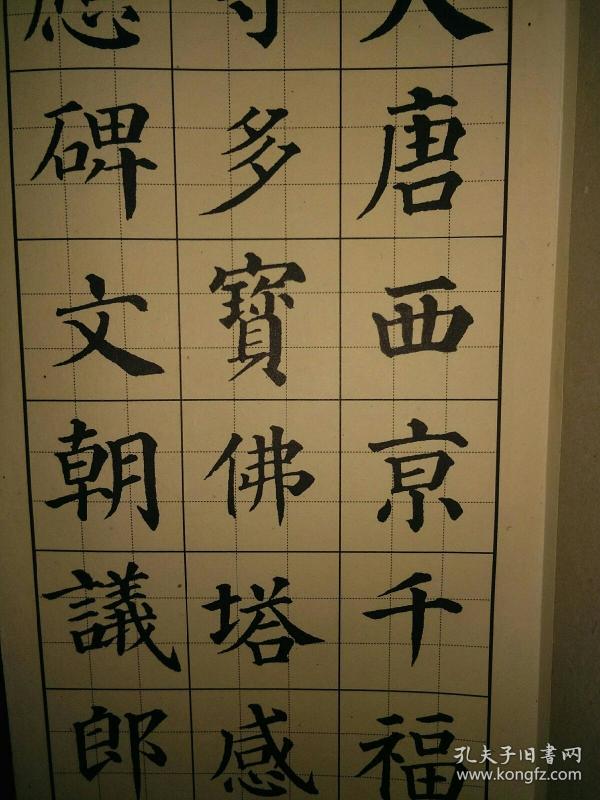 大唐西京千福
寺多寶佛塔感
應碑文朝議郎
孔夫子旧书网
www.kongfz.com